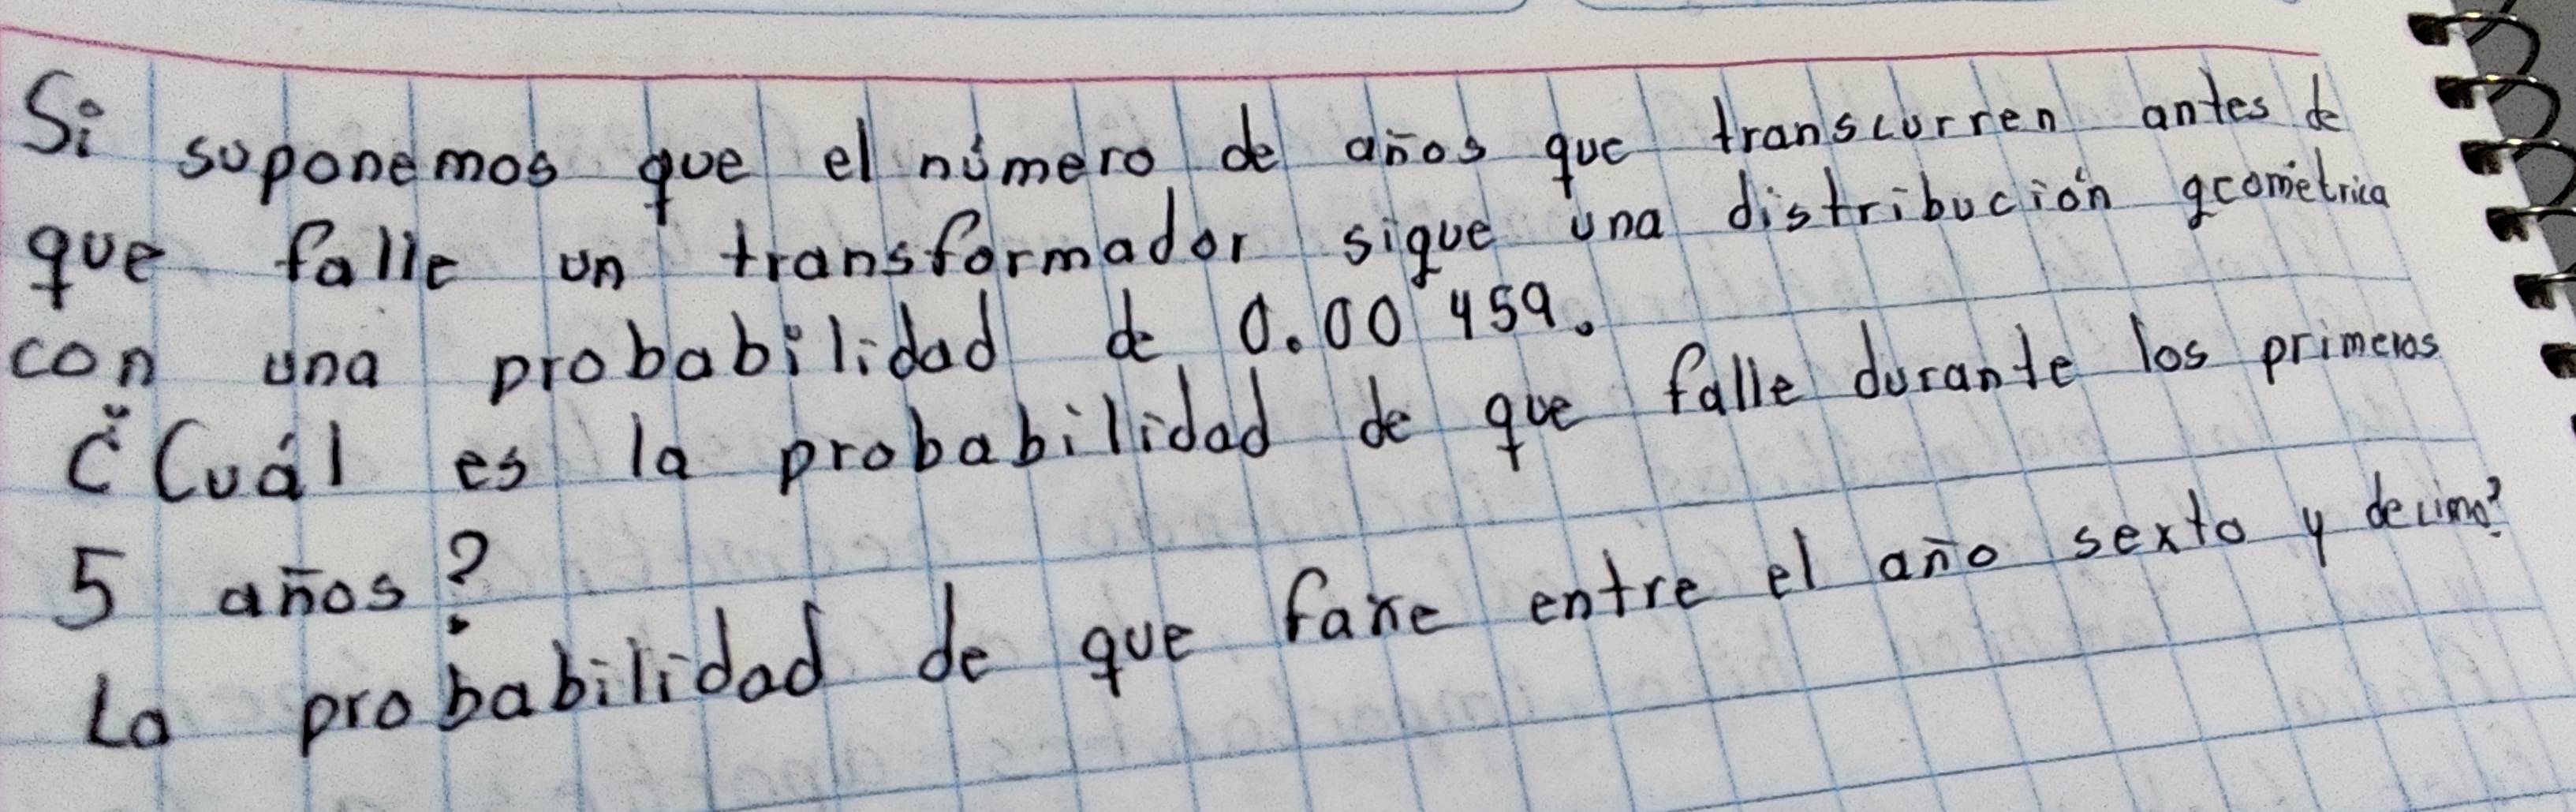 Si suponemos que el número de años que transcurren antes de
que falle un transformador sigue una distribución geométrica
con una probabilidad de 0.00459.
¿Cuál es la probabilidad de que falle durante los primeros
5 años?
La probabilidad de que falle entre el año sexto y decimo?